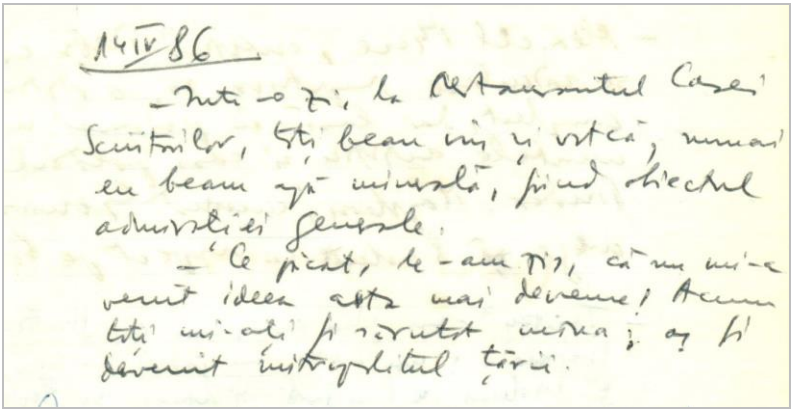 14 IV 86
– Într-o zi, la restaurantul Casei
Scriitorilor, toți beau vin și votcă, numai
eu beam apă minerală, fiind obiectul
admirației generale.
– Ce păcat, le-am zis, că nu mi-a
venit ideea asta mai devreme! Acum
toți mi-ați fi sărutat mâna; aș fi
devenit mitropolitul țării.